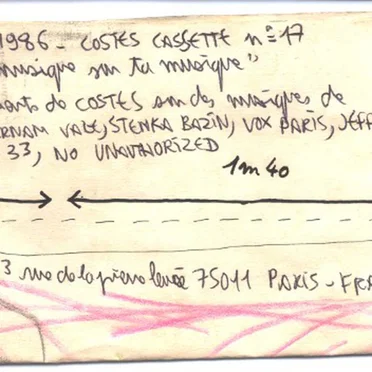 1986 - COSTES CASSETTE n° 17
musique sur ta musique"
chants de COSTES sur des musiques de
RNAM VALK, STENKA BAZIN, VOX PARIS, JEFF
33, NO UNAUTHORIZED
1m40
3 rue de la pierre levée 75011 PARIS - FRA